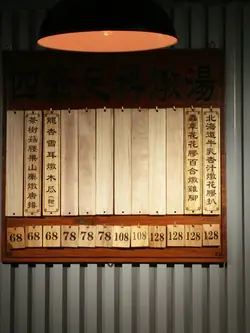 燉湯
北海道牛乳香汁燉花膠扒
蟲草花花膠百合燉雞腳
雪耳燉木瓜
茶樹菇腰果山藥燉唐排
68 68 68 78 78 78 108 108 128 128 128 128